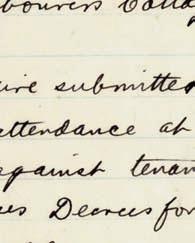 bourers Cotta
ire submitted
attendance at
against tenan
es Decrees for